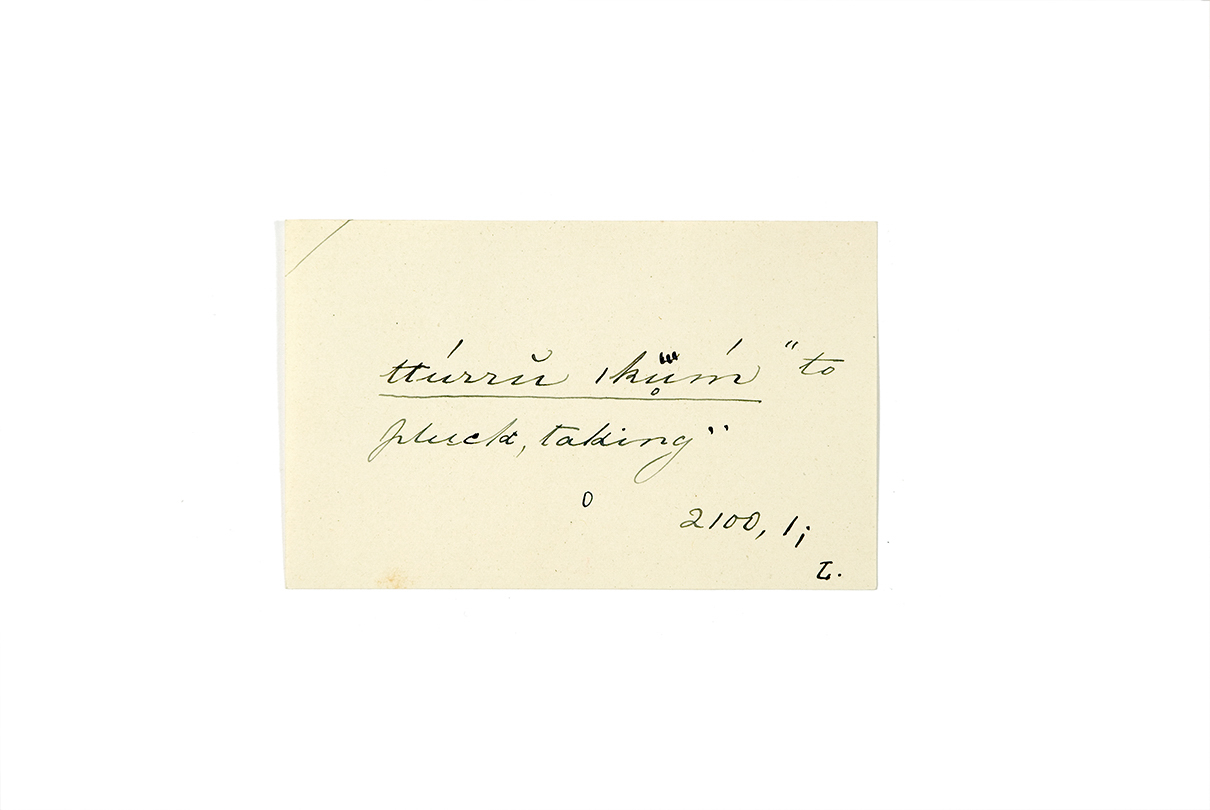 ttúrrŭ ıkṳ̈ḿ "to
pluck, taking"
o
2100, 1;
L.